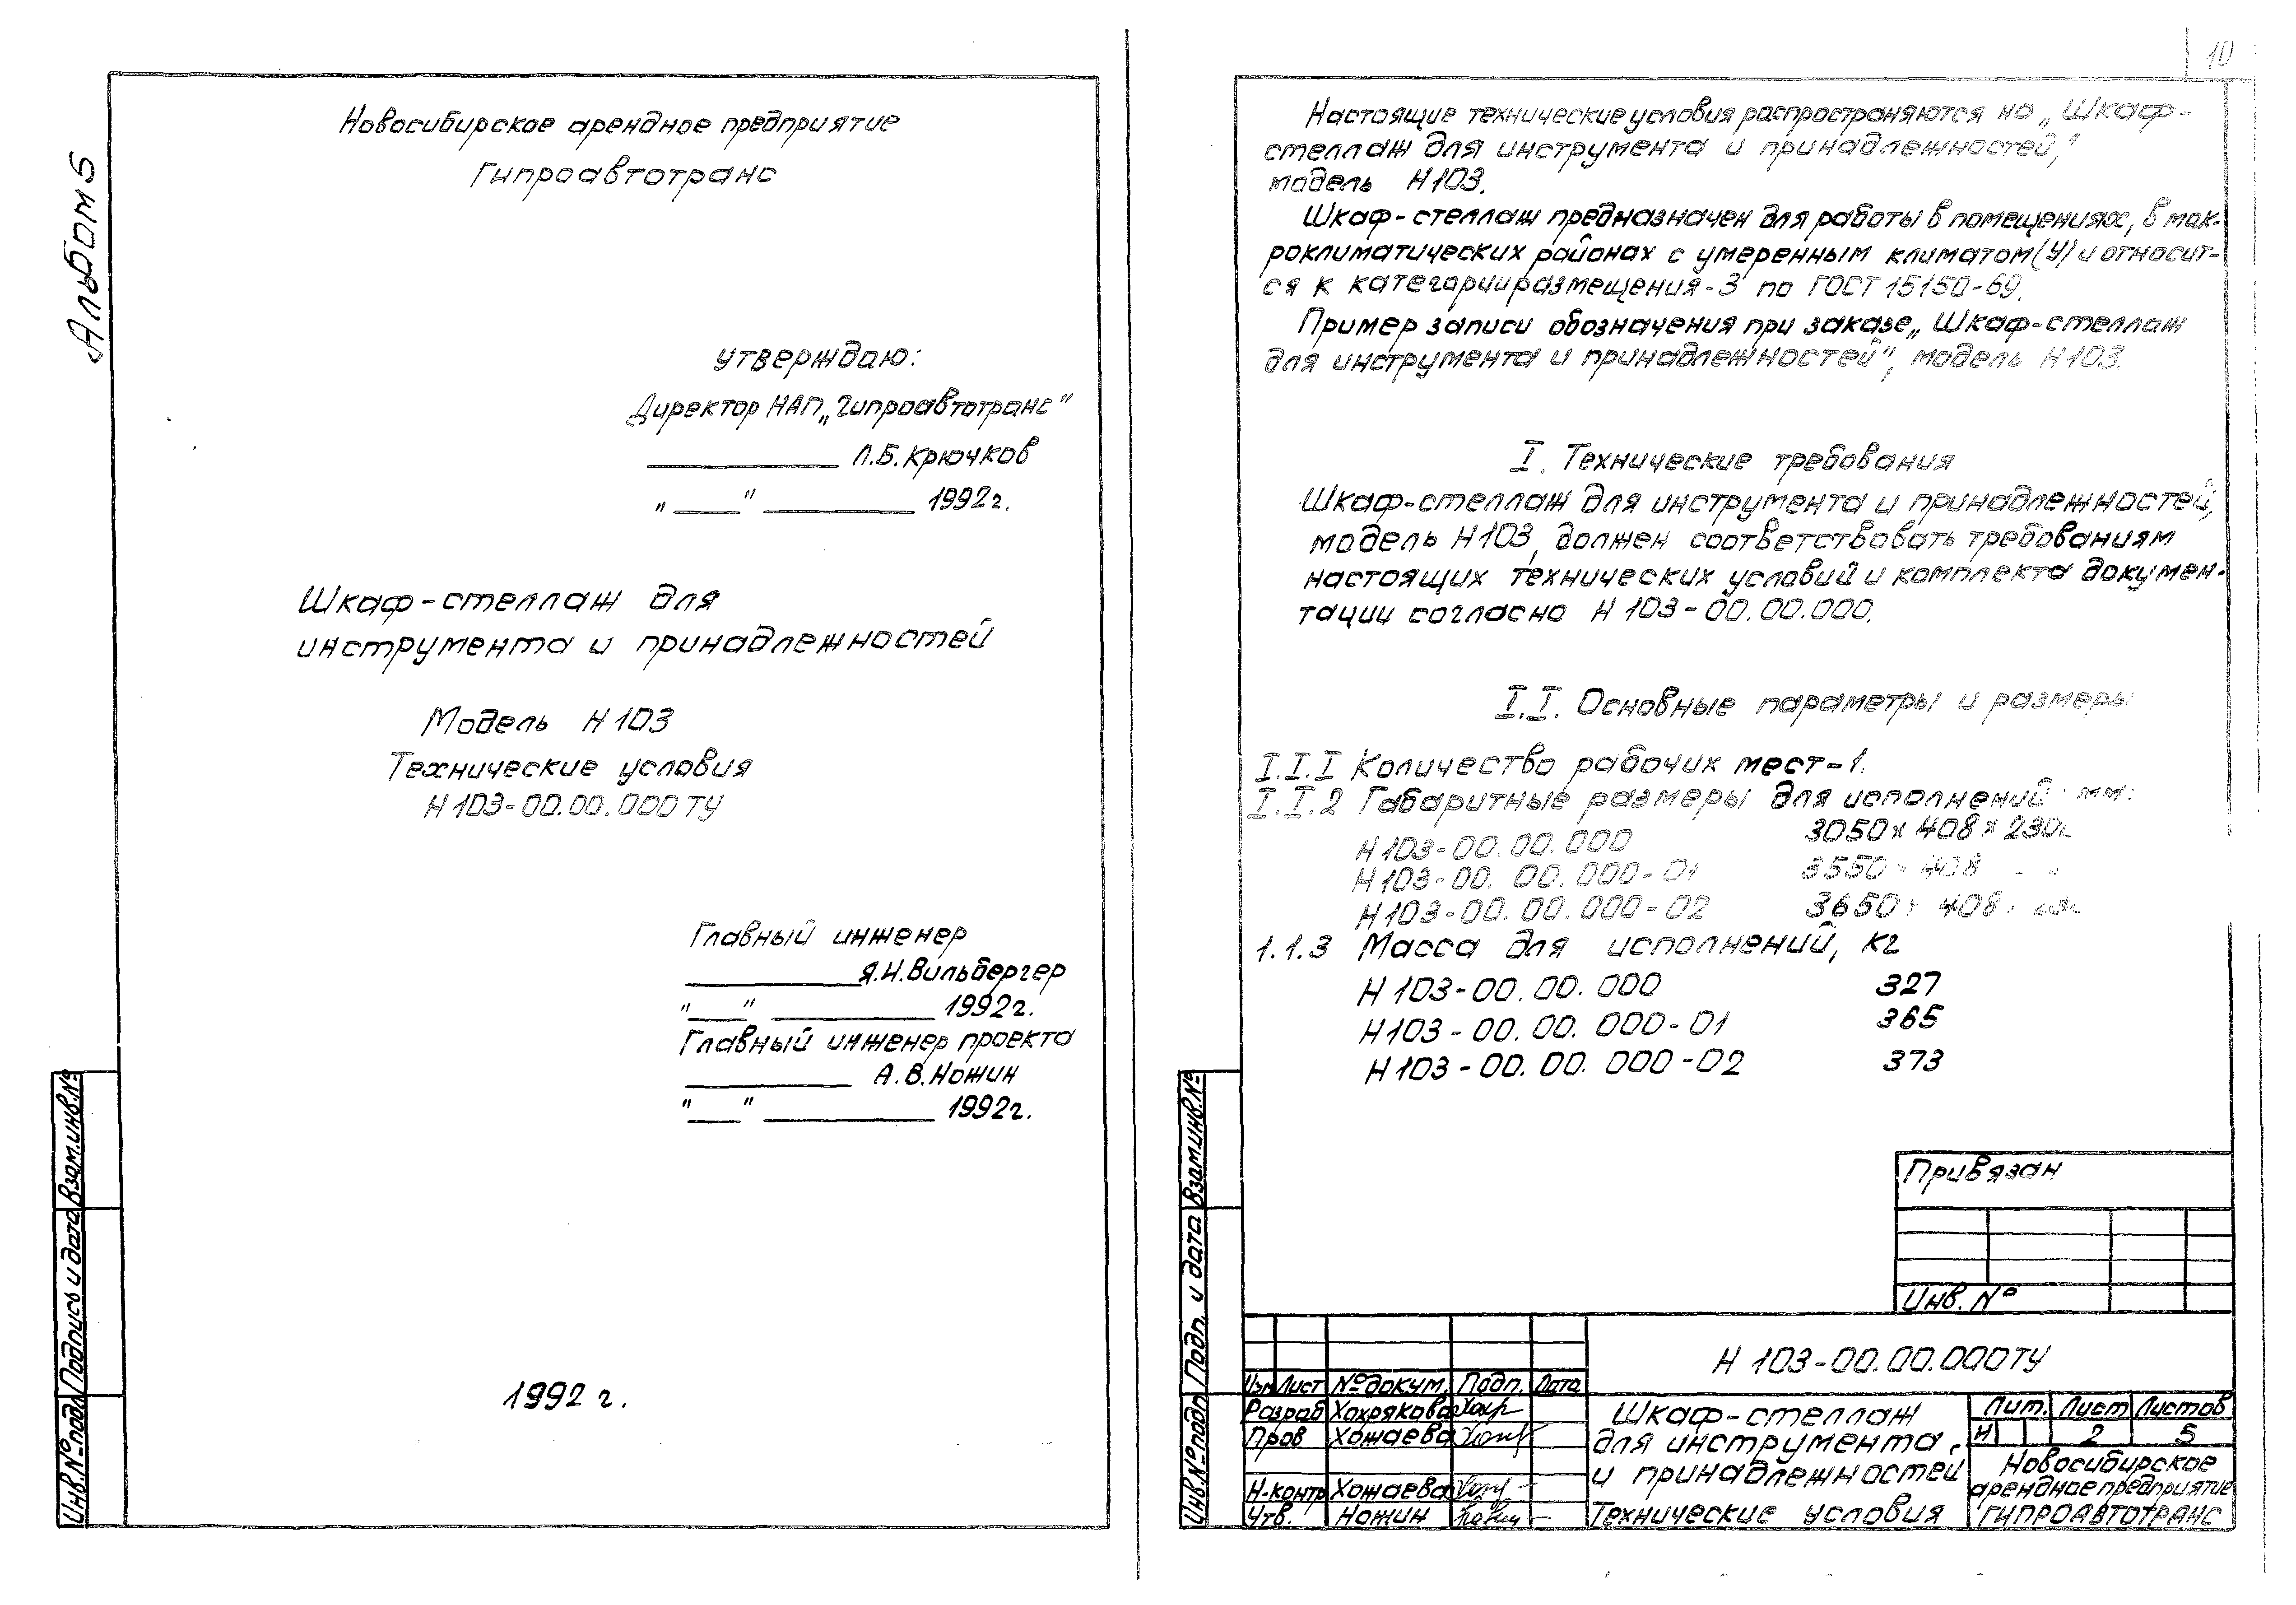 Альбом 5
Новосибирское арендное предприятие
Гипроавтотранс
утверждаю:
Директор НАП „Гипроавтотранс"
Л.Б. Крючков
„ " 1992г.
Шкаф-стеллаж для
инструмента и принадлежностей
Модель Н103
Технические условия
Н103-00.00.000 ТУ
Главный инженер
Я.И. Вильбергер
" " 1992г.
Главный инженер проекта
А.В. Ножин
" " 1992г.
1992 г.
Взам.инв.№
Подпись и дата
Инв.№подл
10
Настоящие технические условия распространяются на „Шкаф-
стеллаж для инструмента и принадлежностей,"
модель Н103.
Шкаф-стеллаж предназначен для работы в помещениях, в мак-
роклиматических районах с умеренным климатом (У) и относит-
ся к категории размещения-3 по ГОСТ 15150-69.
Пример записи обозначения при заказе „Шкаф-стеллаж
для инструмента и принадлежностей", модель Н103.
I. Технические требования
Шкаф-стеллаж для инструмента и принадлежностей,
модель Н103, должен соответствовать требованиям
настоящих технических условий и комплекта докумен-
тации согласно Н 103-00.00.000.
I.I. Основные параметры и размеры
I.I.I Количество рабочих мест-1.
I.I.2 Габаритные размеры для исполнений мм:
Н103-00.00.000 3050х408х
Н103-00.00.000-01 3550х408
Н103-00.00.000-02 3650х408х
1.1.3 Масса для исполнений, кг
Н103-00.00.000 327
Н103-00.00.000-01 365
Н103-00.00.000-02 373
Привязан
Инв. №
Взам.инв.№
Подп. и дата
Инв.№подл
Н 103-00.00.000ТУ
Изм Лист №докум. Подп. Дата
Разраб Хохрякова
Пров Хожаева
Н-контр Хожаева
Утв. Ножин
Шкаф-стеллаж
для инструмента
и принадлежностей
Технические условия
Лит. Лист Листов
И 2 5
Новосибирское
арендное предприятие
ГИПРОАВТОТРАНС